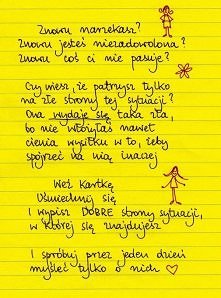 Znowu narzekasz?
Znowu jesteś niezadowolona?
Znowu coś ci nie pasuje?
Czy wiesz, że patrzysz tylko
na złe strony tej sytuacji?
Ona wydaje się taka zła,
bo nie włożyłaś nawet
cienia wysiłku w to, żeby
spojrzeć na nią inaczej
Weź kartkę
Uśmiechnij się
I wypisz DOBRE strony sytuacji,
w której się znajdujesz
I spróbuj przez jeden dzień
myśleć tylko o nich ♡